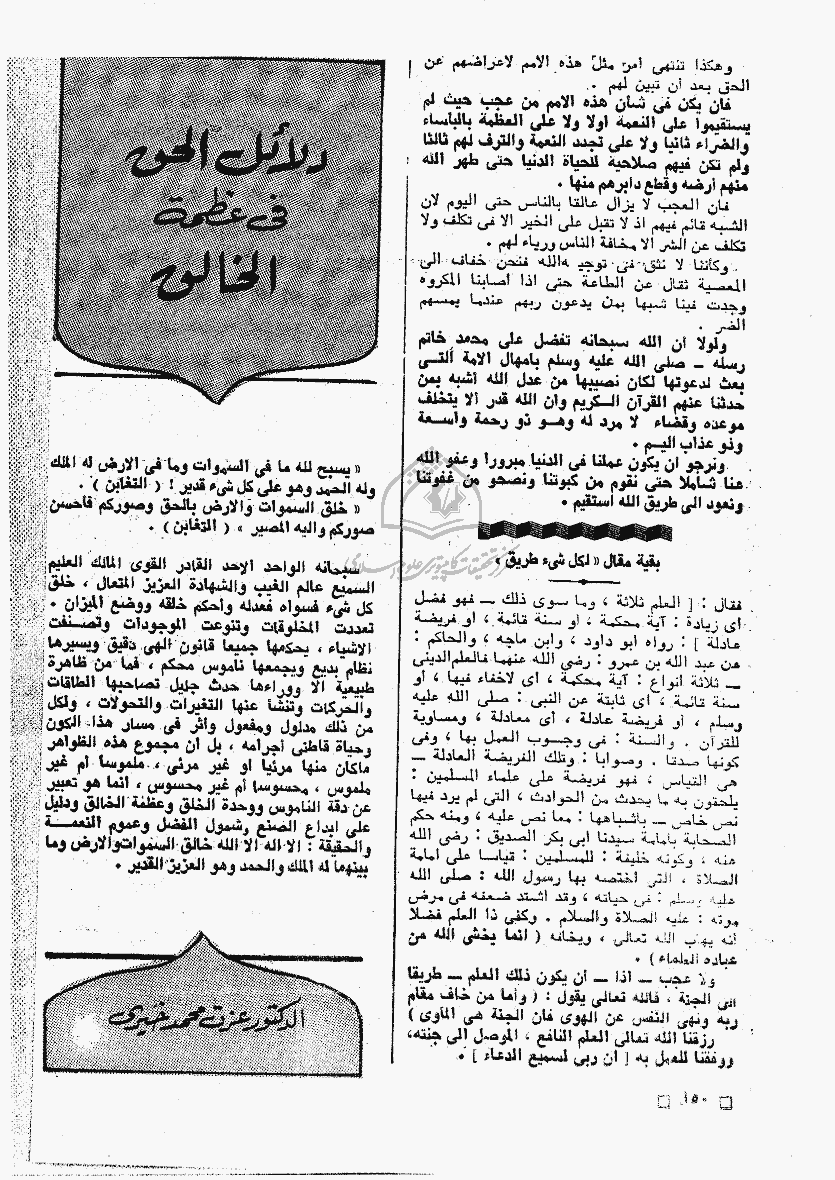 وهكذا تنتهى أمن مثل هذه الامم لاعراضهم عن
الحق بعد أن تبين لهم .
فان يكن فى شأن هذه الامم من عجب حيث لم
يستقيموا على النعمة أولا ولا على العظمة بالبأساء
والضراء ثانيا ولا على تجدد النعمة والترف لهم ثالثا
ولم تكن فيهم صلاحية للحياة الدنيا حتى طهر الله
منهم أرضه وقطع دابرهم منها .
فان العجب لا يزال عالقا بالناس حتى اليوم لان
الشبه قائم فيهم اذ لا تقبل على الخير الا فى تكلف ولا
تكلف عن الشر الا مخافة الناس ورياء لهم .
وكأننا لا نثق فى توجيه الله فنحن خفاف الى
المعصية ثقال عن الطاعة حتى اذا أصابنا المكروه
وجدت فينا شبها بمن يدعون ربهم عندما يمسهم
الضر .
ولولا أن الله سبحانه تفضل على محمد خاتم
رسله ــ صلى الله عليه وسلم بامهال الامة التى
بعث لدعوتها لكان نصيبها من عدل الله أشبه بمن
حدثنا عنهم القرآن الكريم وان الله قدر ألا يتخلف
موعده وقضاء لا مرد له وهو ذو رحمة واسعة
وذو عذاب اليم .
ونرجو أن يكون عملنا فى الدنيا مبرورا وعفو الله
عنا شاملا حتى نقوم من كبوتنا ونصحو من غفوتنا
ونعود الى طريق الله أستقيم .
بقية مقال « لكل شىء طريق »
فقال : [ العلم ثلاثة ، وما سوى ذلك ــ فهو فضل
أى زيادة : آية محكمة ، أو سنة قائمة ، أو فريضة
عادلة ] : رواه أبو داود ، وابن ماجه ، والحاكم :
عن عبد الله بن عمرو : رضى الله عنهما فالعلم الدينى
ــ ثلاثة أنواع : آية محكمة ، أى لاخفاء فيها ، أو
سنة قائمة ، أى ثابتة عن النبى : صلى الله عليه
وسلم ، أو فريضة عادلة ، أى معادلة ، ومساوية
للقرآن . والسنة : فى وجوب العمل بها ، وفى
كونها صدقا . وصوابا : وتلك الفريضة العادلة ــ
هى القياس ، فهو فريضة على علماء المسلمين :
يلحقون به ما يحدث من الحوادث ، التى لم يرد فيها
نص خاص ــ بأشباهها : مما نص عليه ، ومنه حكم
الصحابة بامامة سيدنا أبى بكر الصديق : رضى الله
عنه ، وكونه خليفة : للمسلمين : قياسا على امامة
الصلاة ، التى أختصه بها رسول الله : صلى الله
عليه وسلم : فى حياته ، وقد اشتد ضعفه فى مرض
موته : عليه الصلاة والسلام . وكفى ذا العلم فضلا
أنه يهاب الله تعالى ، ويخافه ( انما يخشى الله من
عباده العلماء ) .
ولا عجب ــ اذا ــ أن يكون ذلك العلم ــ طريقا
الى الجنة ، فالله تعالى يقول : ( وأما من خاف مقام
ربه ونهى النفس عن الهوى فان الجنة هى المأوى )
رزقنا الله تعالى العلم النافع ، الموصل الى جنته،
ووفقنا للعمل به [ ان ربى لسميع الدعاء ] .
دلائل الحق
فى عظمة
الخالق
« يسبح لله ما فى السموات وما فى الارض له الملك
وله الحمد وهو على كل شىء قدير ! ( التغابن ) .
« خلق السموات والارض بالحق وصوركم فأحسن
صوركم واليه المصير » ( التغابن ) .
سبحانه الواحد الاحد القادر القوى المالك العليم
السميع عالم الغيب والشهادة العزيز المتعال ، خلق
كل شىء فسواه فعدله وأحكم خلقه ووضع الميزان .
تعددت المخلوقات وتنوعت الموجودات وتصنفت
الاشياء ، يحكمها جميعا قانون الهى دقيق ويسيرها
نظام بديع ويجمعها ناموس محكم ، فما من ظاهرة
طبيعية الا ووراءها حدث جليل تصاحبها الطاقات
والحركات وتنشأ عنها التغيرات والتحولات ، ولكل
من ذلك مدلول ومفعول وأثر فى مسار هذا الكون
وحياة قاطنى أجرامه ، بل أن مجموع هذه الظواهر
ماكان منها مرئيا أو غير مرئى ، ملموسا أم غير
ملموس ، محسوسا أم غير محسوس ، انما هو تعبير
عن دقة الناموس ووحدة الخلق وعظمة الخالق ودليل
على ابداع الصنع وشمول الفضل وعموم النعمة
والحقيقة : الا اله الا الله خالق السموات والارض وما
بينهما له الملك والحمد وهو العزيز القدير .
الدكتور عزت محمد خيرى
١٥٠